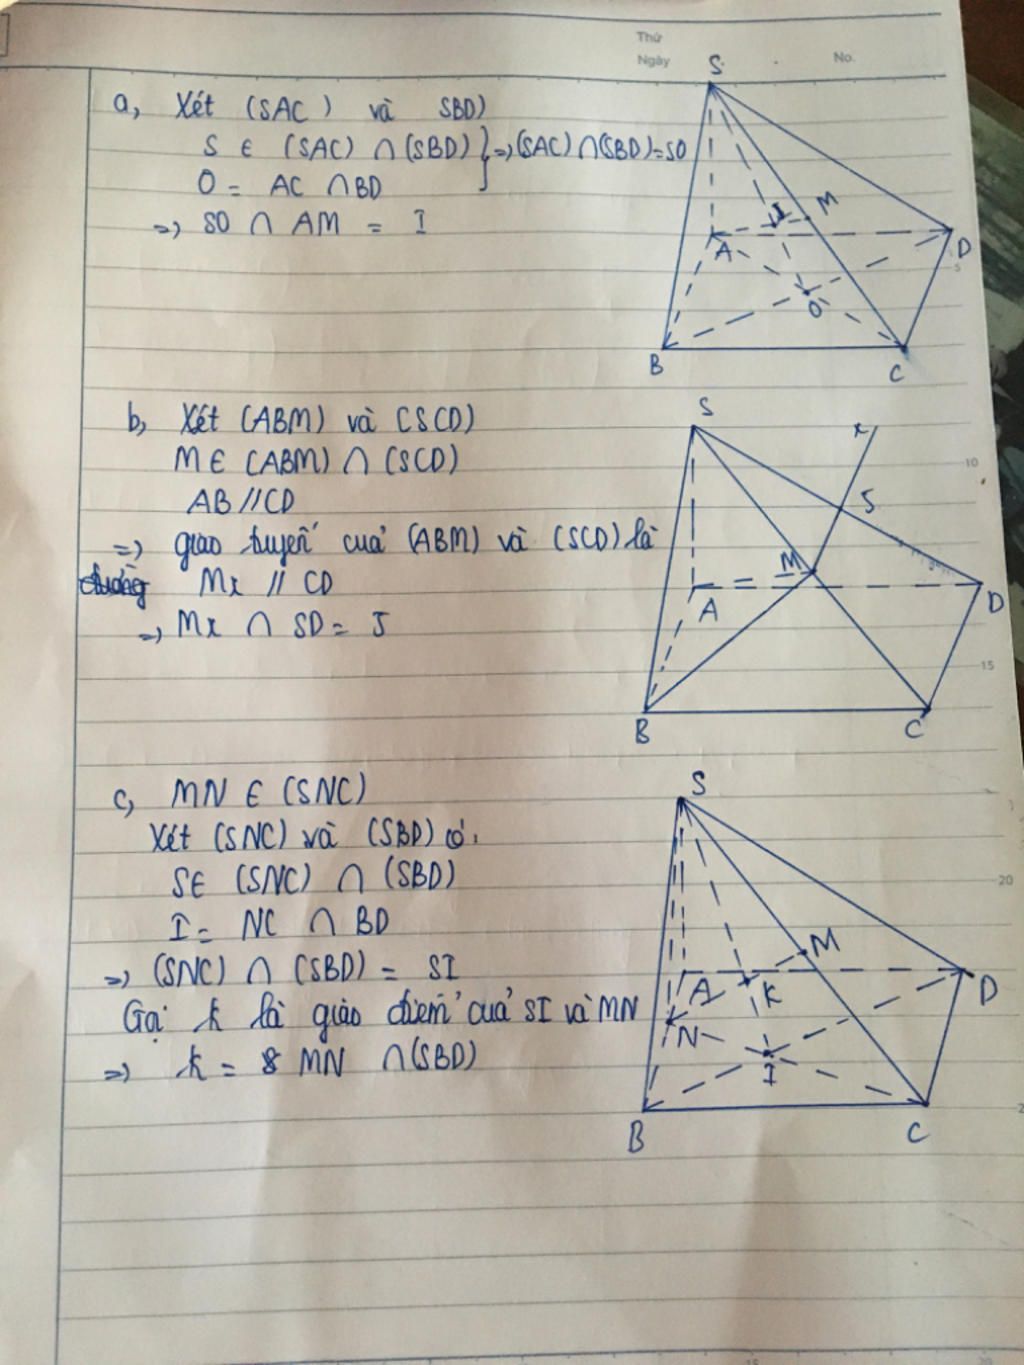 Thứ
Ngày
No.
a, Xét (SAC) và SBD)
S ∈ (SAC) ∩ (SBD) } => (SAC) ∩ (SBD) = SO
O = AC ∩ BD
=> SO ∩ AM = I
S
M
I
A
D
5
O
B
C
b, Xét (ABM) và (SCD)
M ∈ (ABM) ∩ (SCD)
AB // CD
=> giao tuyến của (ABM) và (SCD) là
đường Mx // CD
=> Mx ∩ SD = J
S
x
10
J
M
A
D
15
B
C
c, MN ∈ (SNC)
Xét (SNC) và (SBD) có:
S ∈ (SNC) ∩ (SBD)
I = NC ∩ BD
=> (SNC) ∩ (SBD) = SI
Gọi k là giao điểm của SI và MN
=> k = MN ∩ (SBD)
S
20
M
A
K
D
N
I
B
C
15